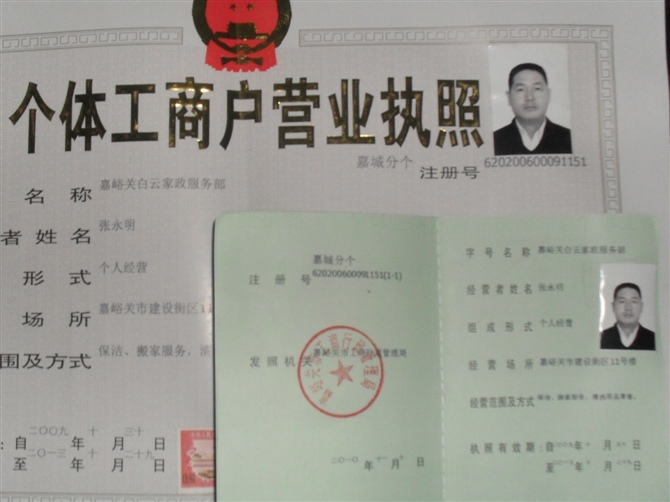 个体工商户营业执照
嘉城分个
注册号 620200600091151
名称 嘉峪关白云家政服务部
者姓名 张永明
形式 个人经营
场所 嘉峪关市建设街区11
围及方式 保洁、搬家服务,清
：自二〇〇九年十月三十日
至二〇一三年十月二十九日
嘉城分个
注册号 620200600091151(1-1)
发照机关 嘉峪关市工商行政管理局
二〇一〇年十一月十日
字号名称 嘉峪关白云家政服务部
经营者姓名 张永明
组成形式 个人经营
经营场所 嘉峪关市建设街区11号楼
经营范围及方式 保洁、搬家服务、清洁用品零售。
执照有效期：自二〇〇九年十月三十日
至二〇一三年十月二十九日